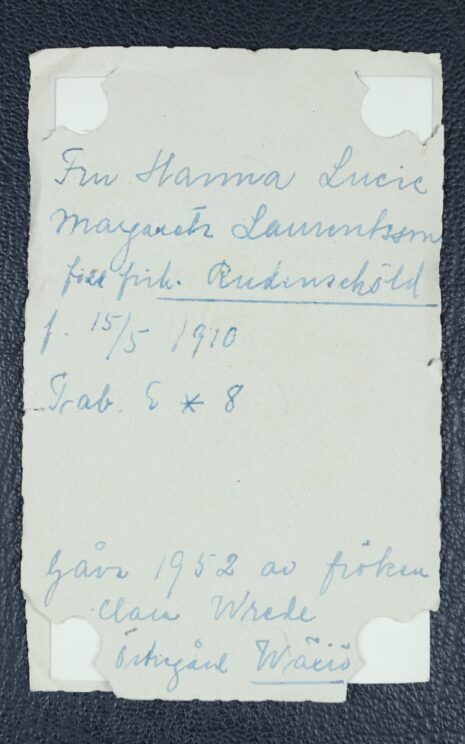 Fru Hanna Lucie
Margareta Laurentsson
född frih. Rudenschöld
f. 15/5 1910
Tab. E * 8
Gåva 1952 av fröken
Clara Wrede
Östergård Wäxiö